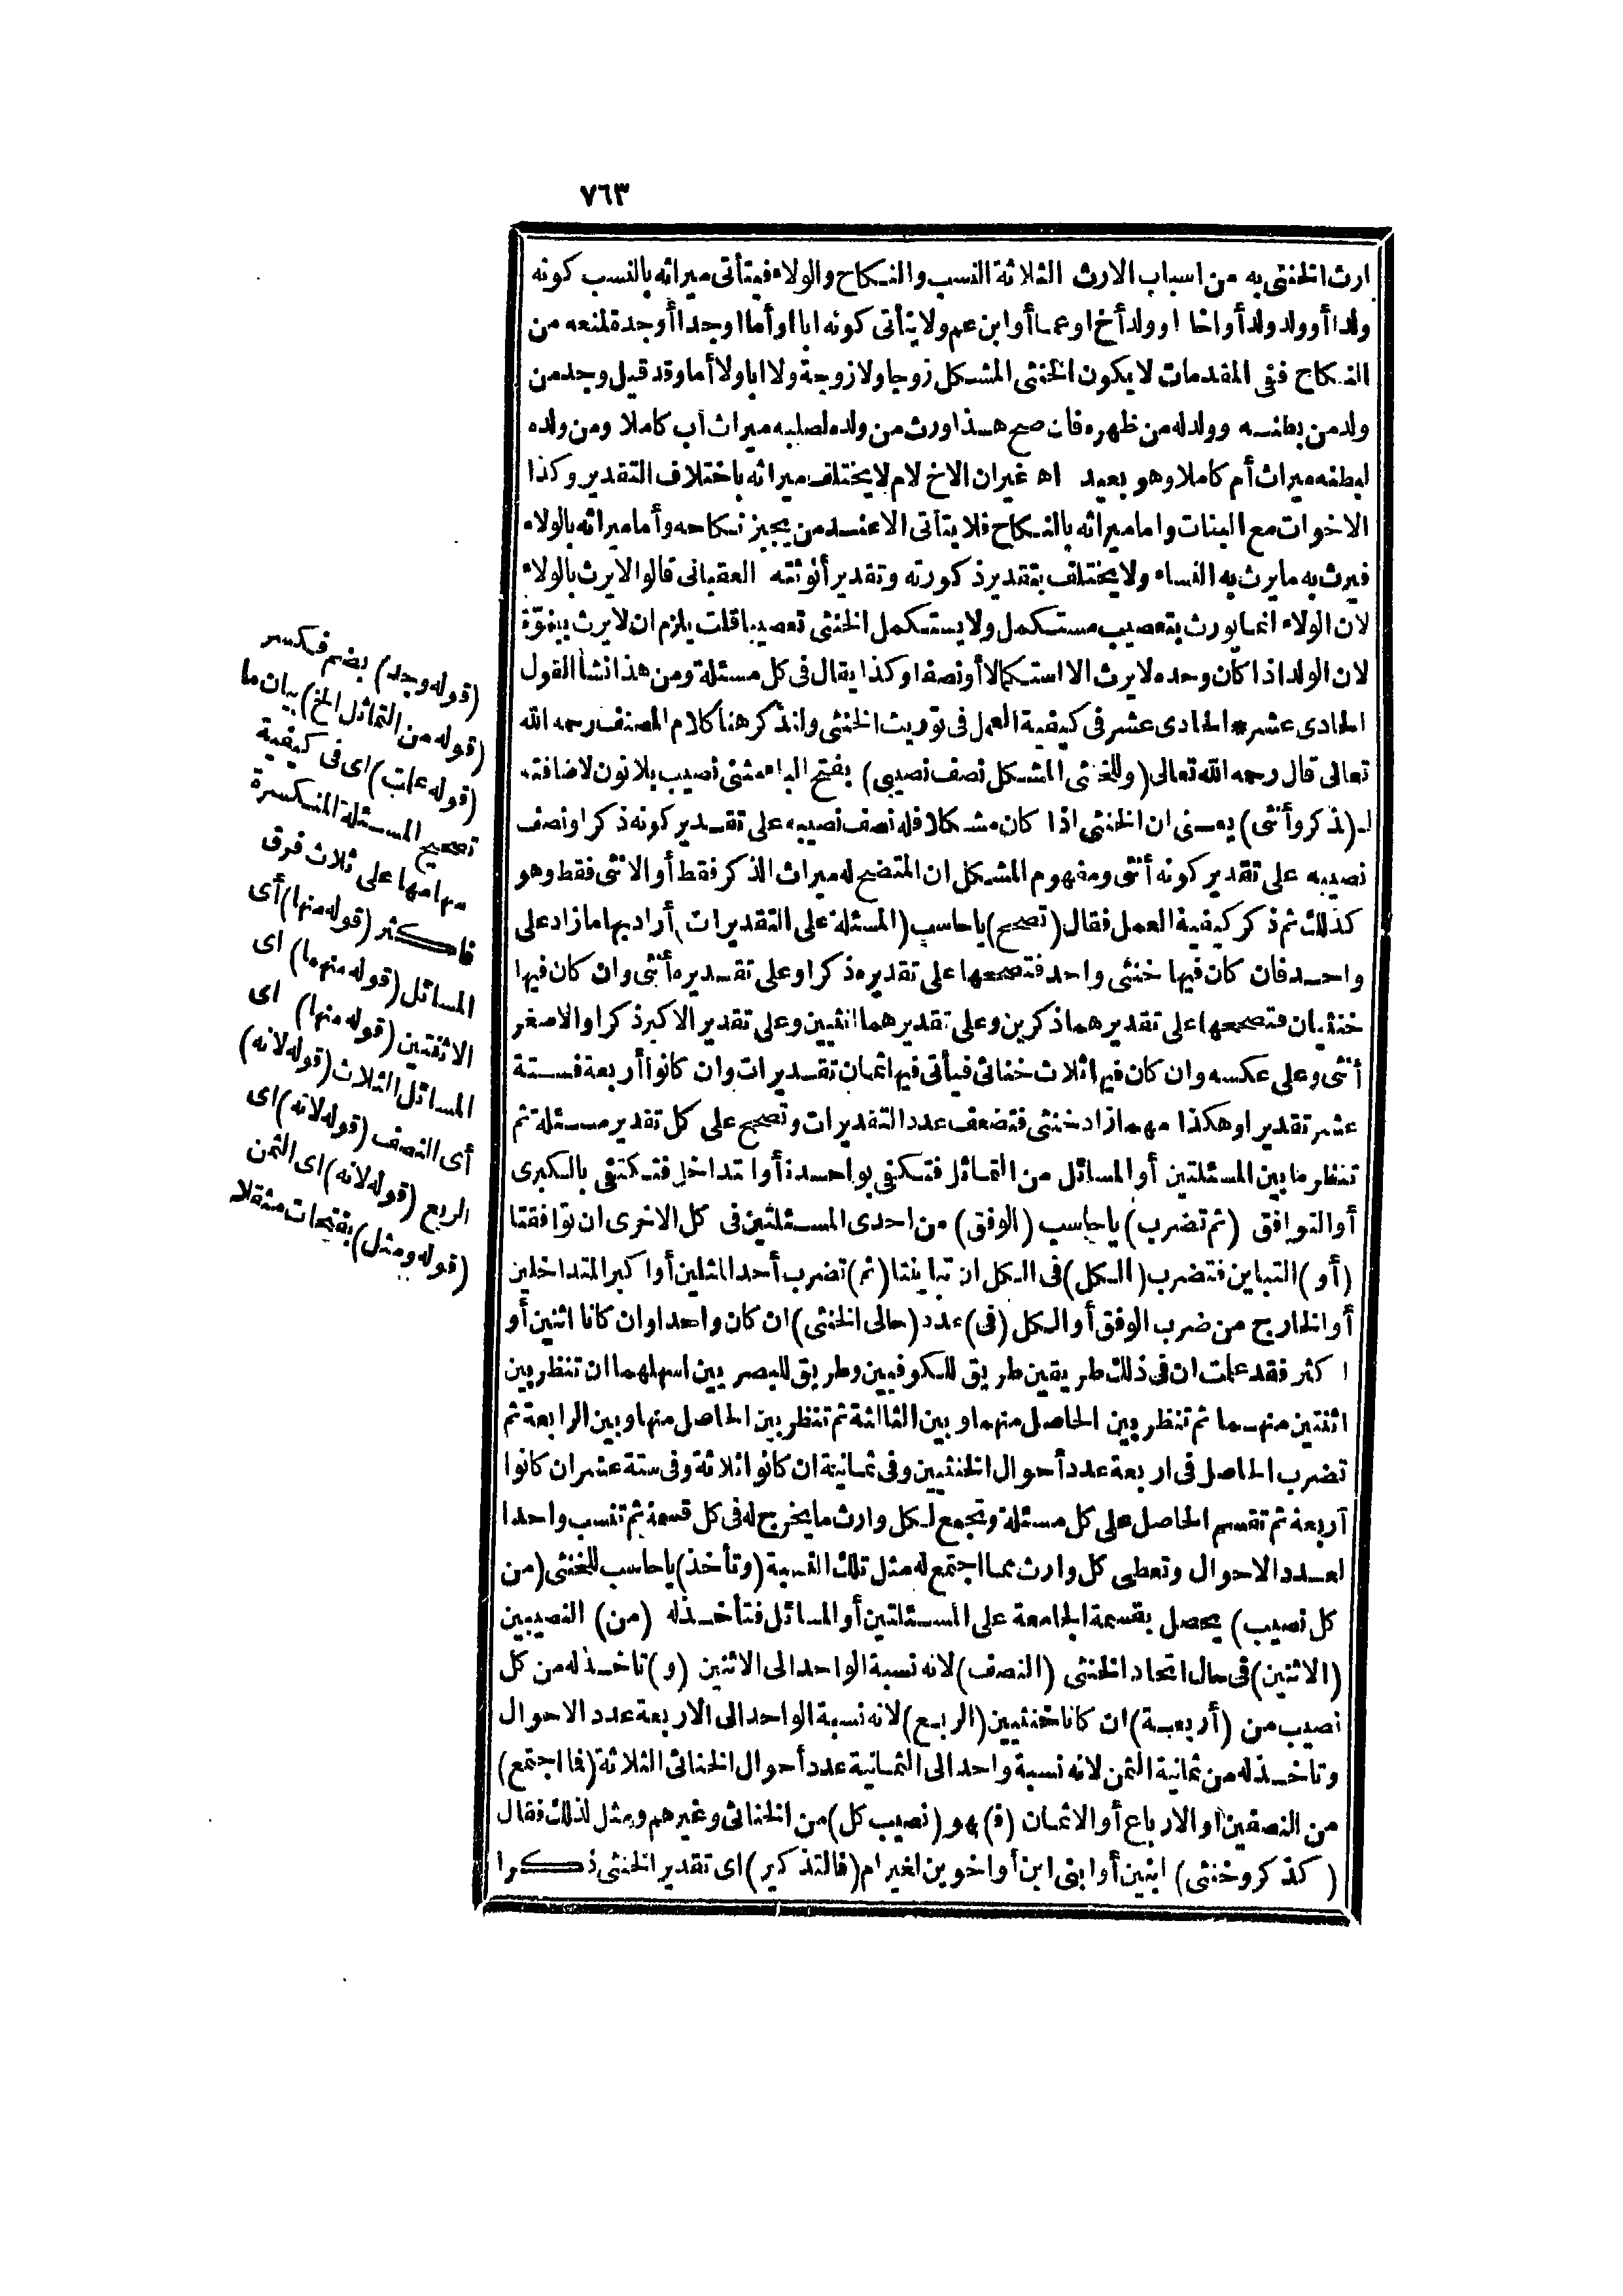 ٧٦٣
ارث الخنثى به من اسباب الارث الثلاثة النسب والنكاح والولاء فيتأتى ميراثه بالنسب كونه
ولدا أو ولد ولد أو اخا او ولد أخ او عما أو ابن عم ولا يتأتى كونه ابا او أما او جدا أو جدة لمنعه من
النكاح ففى المقدمات لا يكون الخنثى المشكل زوجا ولا زوجة ولا ابا ولا أما وقد قيل وجد من
ولد من بطنه وولد له من ظهره فان صح هذا ورث من ولده لصلبه ميراث أب كاملا ومن ولده
لبطنه ميراث أم كاملا وهو بعيد اه غير ان الاخ لام لا يختلف ميراثه باختلاف التقدير وكذا
الاخوات مع البنات واما ميراثه بالنكاح فلا يتأتى الا عند من يجيز نكاحه وأما ميراثه بالولاء
فيرث به ما يرث به النساء ولا يختلف بتقدير ذكورته وتقدير أنوثته العقبانى قالوا لا يرث بالولاء
لان الولاء انما يورث بتعصيب مستكمل ولا يستكمل الخنثى تعصيبا قلت يلزم ان لا يرث ببنوة
لان الولد اذا كان وحده لا يرث الا استكمالا أو نصفا وكذا يقال فى كل مسئلة ومن هذا نشأ القول
الحادى عشر * الحادى عشر فى كيفية العمل فى توريث الخنثى ولنذكر هنا كلام المصنف رحمه الله
تعالى قال رحمه الله تعالى (وللخنثى المشكل نصف نصيبى) بفتح الباء مثنى نصيب بلا نون لاضافته
لـ (ذكر وأنثى) يعنى ان الخنثى اذا كان مشكلا فله نصف نصيبه على تقدير كونه ذكرا ونصف
نصيبه على تقدير كونه أنثى ومفهوم المشكل ان المتضح له ميراث الذكر فقط أو الانثى فقط وهو
كذلك ثم ذكر كيفية العمل فقال (تصحح) يا حاسب (المسئلة على التقديرات) أراد بها ما زاد على
واحد فان كان فيها خنثى واحد فتصححها على تقديره ذكرا وعلى تقديره أنثى وان كان فيها
خنثيان فتصححها على تقديرهما ذكرين وعلى تقديرهما انثيين وعلى تقدير الاكبر ذكرا والاصغر
أنثى وعلى عكسه وان كان فيها ثلاث خناثى فيأتى فيها ثمان تقديرات وان كانوا أربعة فستة
عشر تقديرا وهكذا مهما زاد خنثى فتضعف عدد التقديرات وتصحح على كل تقدير مسئلة ثم
تنظر ما بين المسئلتين أو المسائل من التماثل فتكتفى بواحدة أو التداخل فتكتفى بالكبرى
أو التوافق (ثم تضرب) يا حاسب (الوفق) من احدى المسئلتين فى كل الاخرى ان توافقتا
(أو) التباين فتضرب (الكل) فى الكل ان تباينتا (ثم) تضرب أحد المثلين أو اكبر المتداخلين
أو الخارج من ضرب الوفق أو الكل (فى) عدد (حالى الخنثى) ان كان واحدا وان كانا اثنين أو
اكثر فقد علمت ان فى ذلك طريقين طريق للكوفيين وطريق للبصريين اسهلهما ان تنظر بين
اثنتين منهما ثم تنظر بين الحاصل منهما وبين الثالثة ثم تنظر بين الحاصل منها وبين الرابعة ثم
تضرب الحاصل فى اربعة عدد أحوال الخنثيين وفى ثمانية ان كانوا ثلاثة وفى ستة عشر ان كانوا
أربعة ثم تقسم الحاصل على كل مسئلة وتجمع لكل وارث ما يخرج له فى كل قسمة ثم تنسب واحدا
لعدد الاحوال وتعطى كل وارث مما اجتمع له مثل تلك النسبة (وتأخذ) يا حاسب للخنثى (من
كل نصيب) يحصل بقسمة الجامعة على المسئلتين أو المسائل فتأخذ له (من) النصيبين
(الاثنين) فى حال اتحاد الخنثى (النصف) لانه نسبة الواحد الى الاثنين (و) تاخذ له من كل
نصيب من (أربعة) ان كانا خنثيين (الربع) لانه نسبة الواحد الى الاربعة عدد الاحوال
وتاخذ له من ثمانية الثمن لانه نسبة واحد الى الثمانية عدد أحوال الخناثى الثلاثة (فما اجتمع)
من النصفين او الارباع أو الاثمان (فـ) هو (نصيب كل) من الخناثى وغيرهم ومثل لذلك فقال
(كذكر وخنثى) ابنين أو ابنى ابن أو اخوين لغير ام (فالتذكير) اى تقدير الخنثى ذكرا
(قوله وجد) بضم فكسر
(قوله من التماثل الخ) بيان ما
(قوله علمت) اى فى كيفية
تصحيح المسئلة المنكسرة
سهامها على ثلاث فرق
فاكثر (قوله منها) أى
المسائل (قوله منهما) اى
الاثنتين (قوله منها) اى
المسائل الثلاث (قوله لانه)
أى النصف (قوله لانه) اى
الربع (قوله لانه) اى الثمن
(قوله ومثل) بفتحات مثقلا